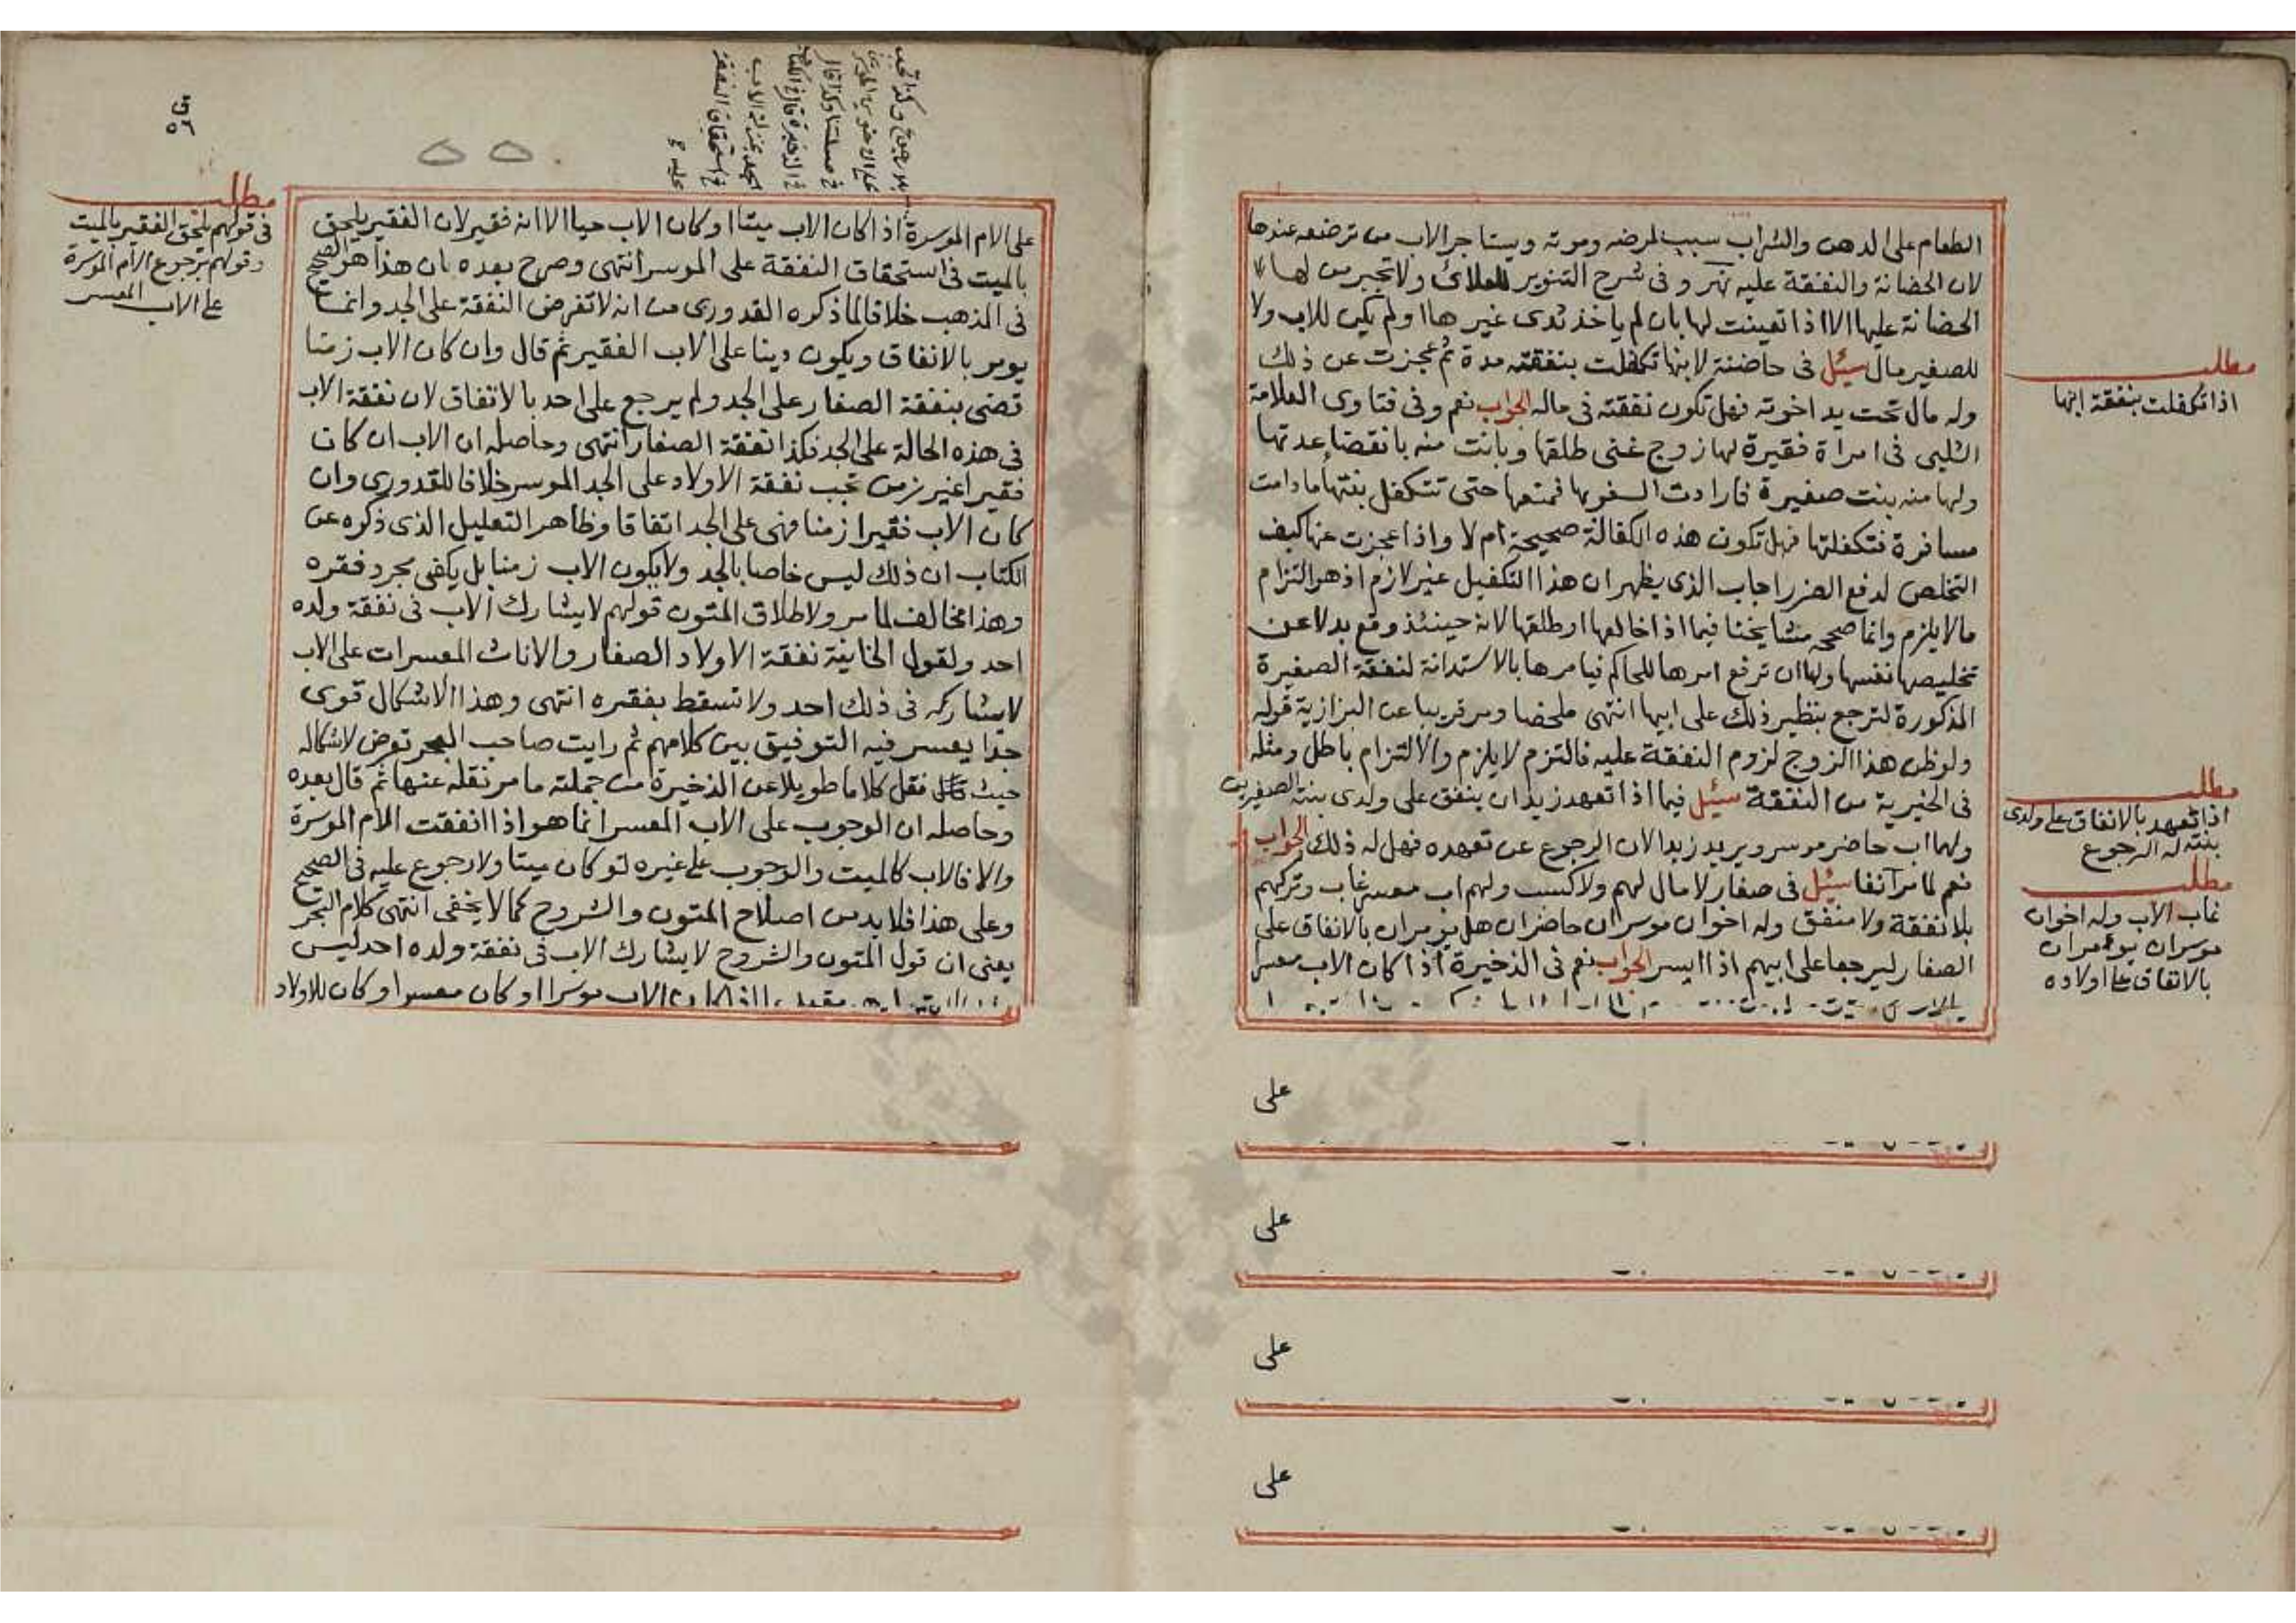 الطعام على الدهن والشراب سبب لمرضه وموته ويستاجر الاب من ترضعه عندها
لان الحضانة والنفقة عليه نهر وفى شرح التنوير للعلائ ولا تجبر من لها
الحضانة عليها الا اذا تعينت لها بان لم ياخذ ثدى غيرها او لم يكن للاب ولا
للصغير مال سئل فى حاضنة لابنها تكفلت بنفقته مدة ثم عجزت عن ذلك
وله مال تحت يد اخوته فهل تكون نفقته فى ماله الجواب نعم وفى فتاوى العلامة
الشلبى فى امراة فقيرة لها زوج غنى طلقها وبانت منه بانقضاء عدتها
ولها منه بنت صغيرة فارادت السفر بها فمنعها حتى تتكفل بنتها ما دامت
مسافرة فتكفلتها فهل تكون هذه الكفالة صحيحة ام لا واذا عجزت عنها كيف
التخلص لدفع الضرر اجاب الذى يظهر ان هذا التكفيل غير لازم اذ هو التزام
ما لا يلزم وانما صححه مشايخنا فيما اذا خالعها او طلقها لانه حينئذ وقع بدلا عن
تخليصها نفسها ولها ان ترفع امرها للحاكم فيامرها بالاستدانة لنفقة الصغيرة
المذكورة لترجع بنظير ذلك على ابيها انتهى ملخصا ومر قريبا عن البزازية قوله
ولو ظن هذا الزوج لزوم النفقة عليه فالتزم لا يلزم والالتزام باطل ومثله
فى الخيرية من النفقة سئل فيما اذا تعهد زيد ان ينفق على ولدى بنته الصغيرين
ولهما اب حاضر موسر ويريد زيد الان الرجوع عن تعهده فهل له ذلك الجواب
نعم لما مر آنفا سئل فى صغار لا مال لهم ولا كسب ولهم اب معسر غاب وتركهم
بلا نفقة ولا منفق وله اخوان موسران حاضران هل يومران بالانفاق على
الصغار ليرجعا على ابيهم اذا ايسر الجواب نعم فى الذخيرة اذا كان الاب معسرا
على
على
على
على
مطلب
اذا تكفلت بنفقة ابنها
مطلب
اذا تعهد بالانفاق على ولدى
بنته له الرجوع
مطلب
غاب الاب وله اخوان
موسران يومران
بالانفاق على اولاده
على الام الموسرة اذا كان الاب ميتا او كان الاب حيا الا انه فقير لان الفقير يلحق
بالميت فى استحقاق النفقة على الموسر انتهى وصرح بعده بان هذا هو الصحيح
فى المذهب خلافا لما ذكره القدورى من انه لا تفرض النفقة على الجد وانما
يومر بالانفاق ويكون دينا على الاب الفقير ثم قال وان كان الاب زمنا
قضى بنفقة الصغار على الجد ولم يرجع على احد بالاتفاق لان نفقة الاب
فى هذه الحالة على الجد فكذا نفقة الصغار انتهى وحاصله ان الاب ان كان
فقيرا غير زمن تجب نفقة الاولاد على الجد الموسر خلافا للقدورى وان
كان الاب فقيرا زمنا فهى على الجد اتفاقا وظاهر التعليل الذى ذكره عن
الكتاب ان ذلك ليس خاصا بالجد ولا بكون الاب زمنا بل يكفى مجرد فقره
وهذا مخالف لما مر ولاطلاق المتون قولهم لا يشارك الاب فى نفقة ولده
احد ولقول الخانية نفقة الاولاد الصغار والاناث المعسرات على الاب
لا يشاركه فى ذلك احد ولا تسقط بفقره انتهى وهذا الاشكال قوى
جدا يعسر فيه التوفيق بين كلامهم ثم رايت صاحب البحر تعرض لاشكاله
حيث نقل كلاما طويلا عن الذخيرة من جملته ما مر نقله عنها ثم قال بعده
وحاصله ان الوجوب على الاب المعسر انما هو اذا انفقت الام الموسرة
والا فالاب كالميت والوجوب على غيره لو كان ميتا ولا رجوع عليه فى الصحيح
وعلى هذا فلا بد من اصلاح المتون والشروح كما لا يخفى انتهى كلام البحر
يعنى ان قول المتون والشروح لا يشارك الاب فى نفقة ولده احد ليس
الاب موسرا او كان معسرا وكان للاولاد
مطلب
فى قولهم يلحق الفقير بالميت
وقولهم برجوع الام الموسرة
على الاب المعسر
وكذا تجب
فى مسئلتنا وكذا قال
فى الذخيرة
الجد بمنزلة الاب
فى استحقاق النفقة
عليه